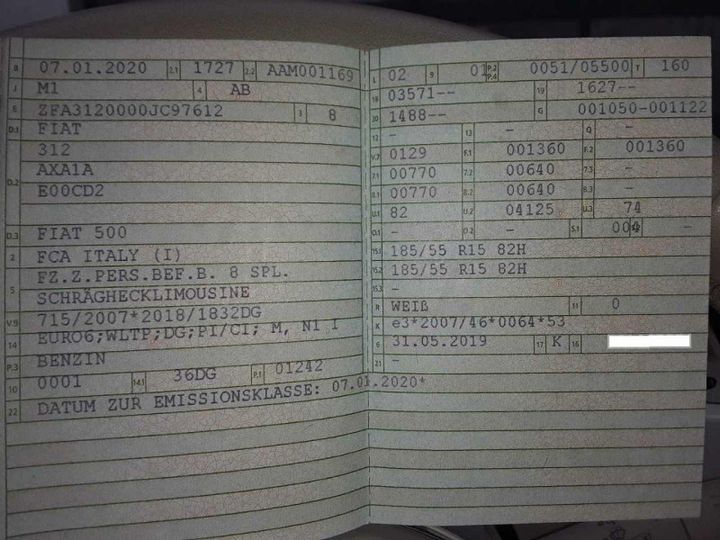 B 07.01.2020 2.1 1727 2.2 AAM001169
J M1 4 AB
E ZFA3120000JC97612 3 8
D.1 FIAT
312
D.2 AXA1A
E00CD2
D.3 FIAT 500
2 FCA ITALY (I)
FZ.Z.PERS.BEF.B. 8 SPL.
5 SCHRÄGHECKLIMOUSINE
V.9 715/2007*2018/1832DG
14 EURO6;WLTP;DG;PI/CI; M, N1 I
P.3 BENZIN
10 0001 14.1 36DG P.1 01242
22 DATUM ZUR EMISSIONSKLASSE: 07.01.2020*
L 02 9 01 P.2 P.4 0051/05500 T 160
18 03571-- 19 1627--
20 1488-- G 001050-001122
12 - 13 - Q -
V.7 0129 F.1 001360 F.2 001360
7.1 00770 7.2 00640 7.3 -
8.1 00770 8.2 00640 8.3 -
U.1 82 U.2 04125 U.3 74
O.1 - O.2 - S.1 004 -
15.1 185/55 R15 82H
15.2 185/55 R15 82H
15.3 -
R WEIß 11 0
K e3*2007/46*0064*53
6 31.05.2019 17 K 16
21 -